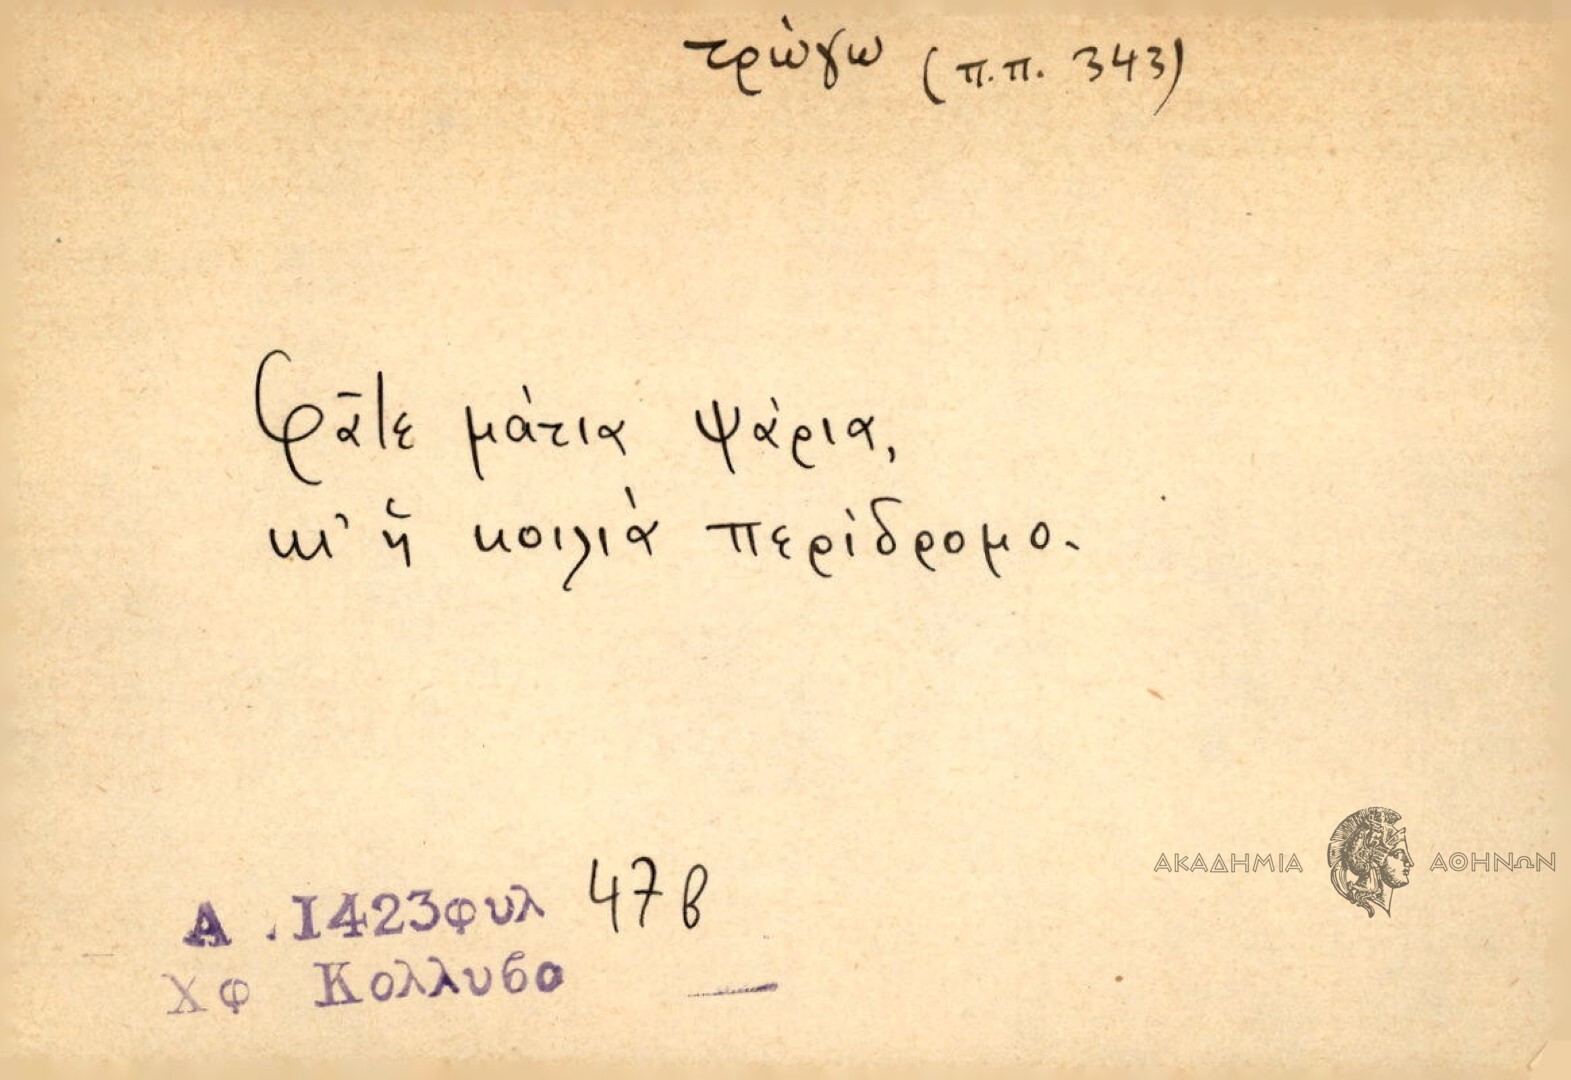 τρώγω (π.π. 343)
Φᾶτε μάτια ψάρια,
κι' ἡ κοιλιὰ περίδρομο.
Α .1423φυλ 47β
Χφ Κολλυβα
ΑΚΑΔΗΜΙΑ ΑΘΗΝΩΝ